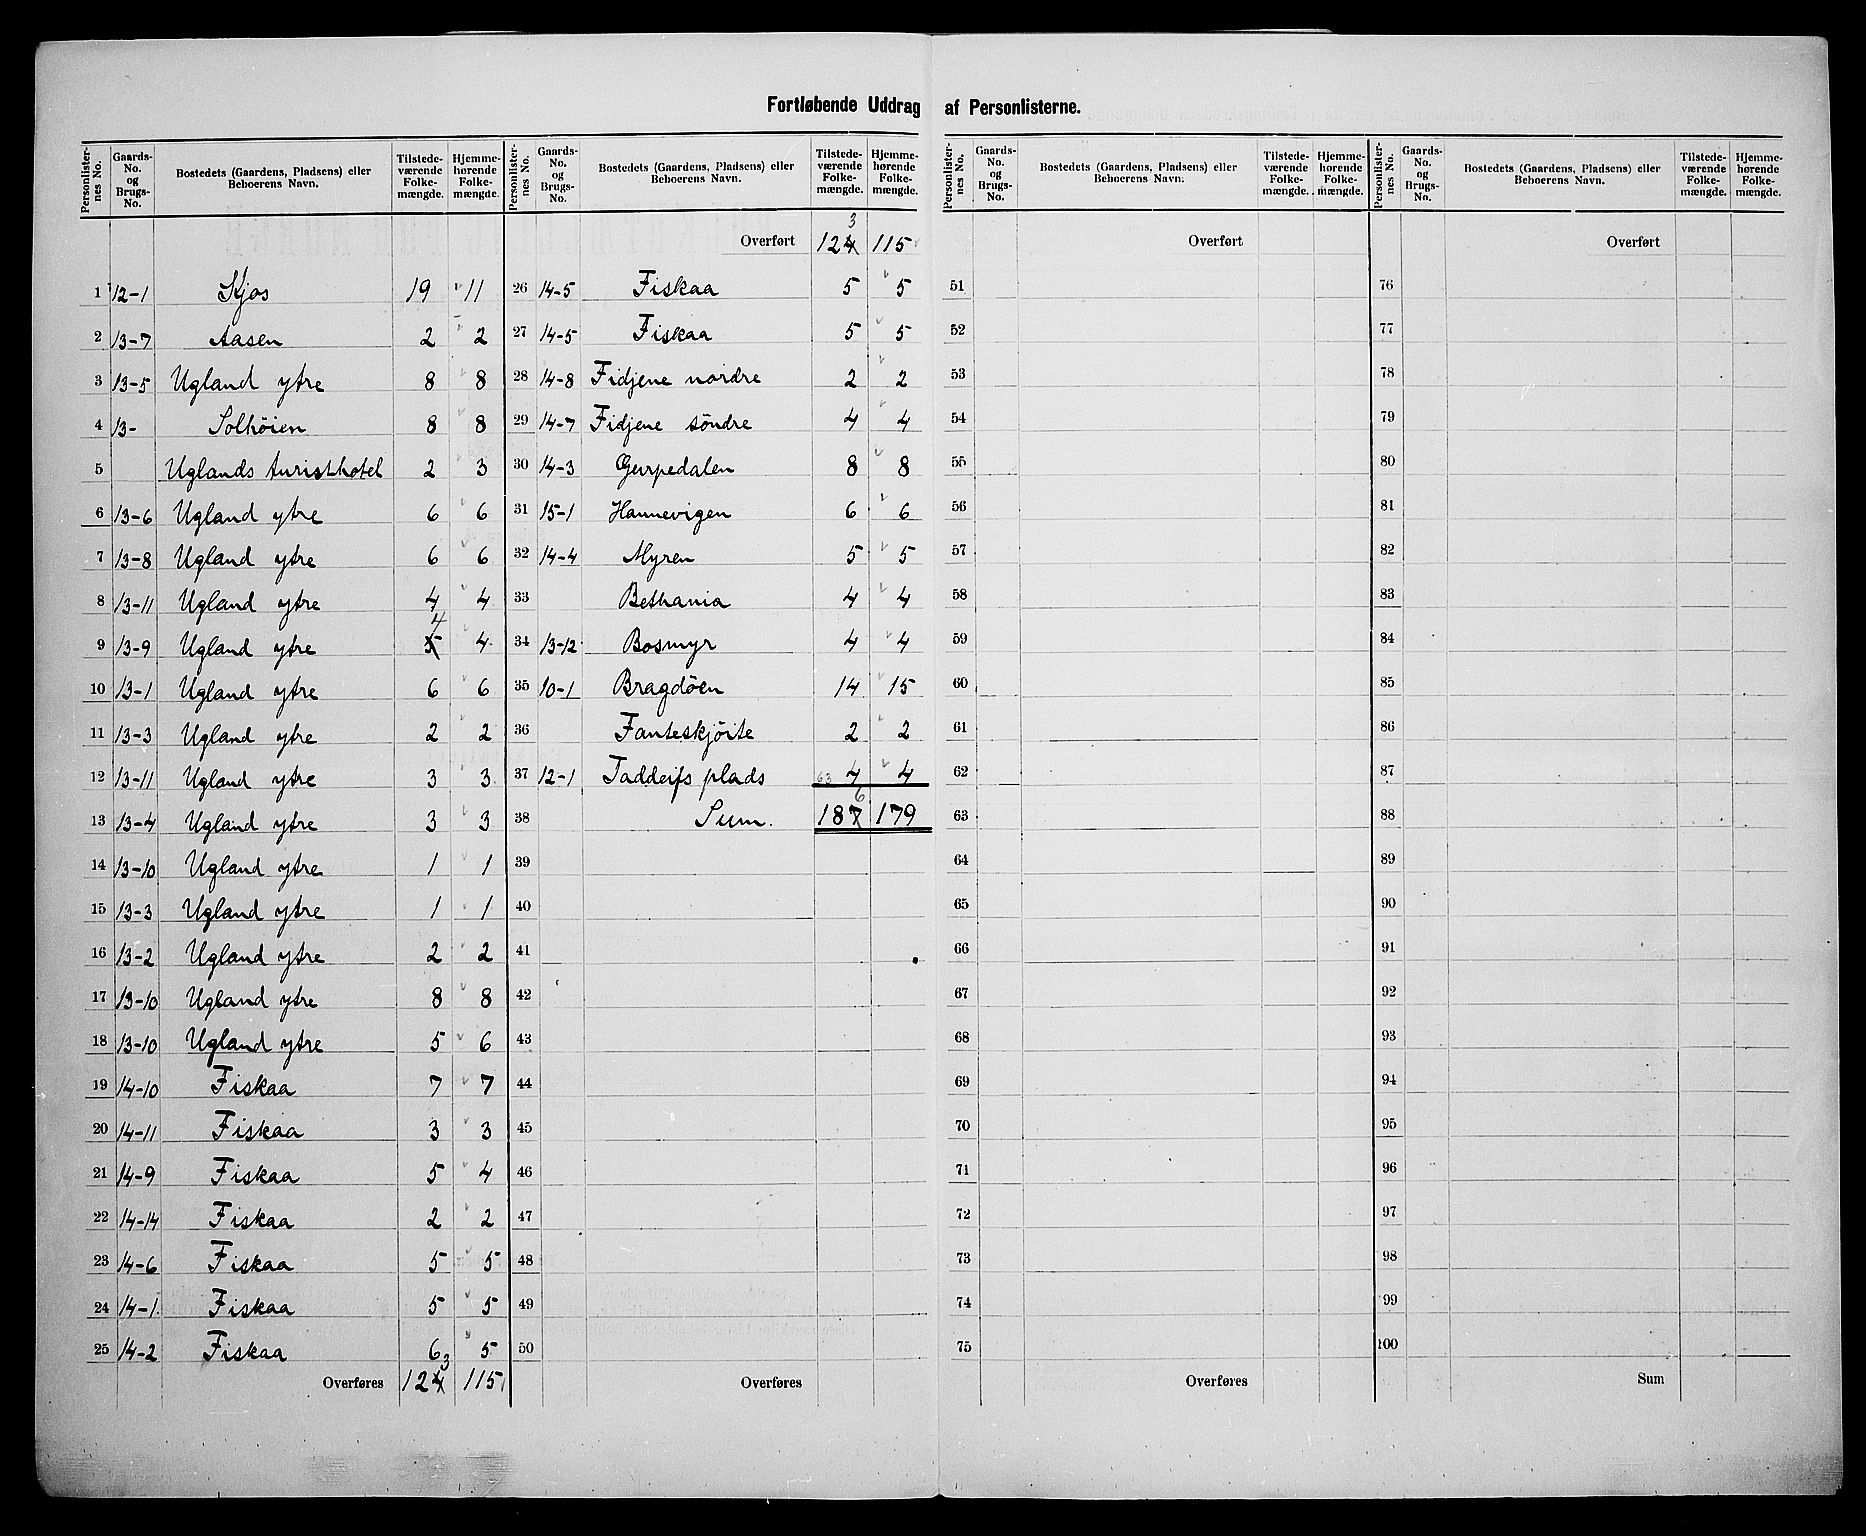 Fortløbende Uddrag af Personlisterne.
Personlister-nes No. | Gaards-No. og Brugs-No. | Bostedets (Gaardens, Pladsens) eller Beboerens Navn. | Tilstede-værende Folke-mængde. | Hjemme-hørende Folke-mængde.
1 12-1 Kjos 19 11
2 13-7 Aasen 2 2
3 13-5 Ugland ytre 8 8
4 13- Solhöien 8 8
5 Uglands turisthotel 2 3
6 13-6 Ugland ytre 6 6
7 13-8 Ugland ytre 6 6
8 13-11 Ugland ytre 4 4
9 13-9 Ugland ytre 5 4 4
10 13-1 Ugland ytre 6 6
11 13-3 Ugland ytre 2 2
12 13-11 Ugland ytre 3 3
13 13-4 Ugland ytre 3 3
14 13-10 Ugland ytre 1 1
15 13-3 Ugland ytre 1 1
16 13-2 Ugland ytre 2 2
17 13-10 Ugland ytre 8 8
18 13-10 Ugland ytre 5 6
19 14-10 Fiskaa 7 7
20 14-11 Fiskaa 3 3
21 14-9 Fiskaa 5 4
22 14-14 Fiskaa 2 2
23 14-6 Fiskaa 5 5
24 14-1 Fiskaa 5 5
25 14-2 Fiskaa 6 5
Overføres 124 3 115
Personlister-nes No. | Gaards-No. og Brugs-No. | Bostedets (Gaardens, Pladsens) eller Beboerens Navn. | Tilstede-værende Folke-mængde. | Hjemme-hørende Folke-mængde.
Overført 124 3 115
26 14-5 Fiskaa 5 5
27 14-5 Fiskaa 5 5
28 14-8 Fidjene nordre 2 2
29 14-7 Fidjene söndre 4 4
30 14-3 Gurpedalen 8 8
31 15-1 Hannevigen 6 6
32 14-4 Myren 5 5
33 Bethania 4 4
34 13-12 Bosmyr 4 4
35 10-1 Bragdöen 14 15
36 Fanteskjöite 2 2
37 12-1 Taddeifs plads 63 4 4
38 Sum. 187 6 179
39
40
41
42
43
44
45
46
47
48
49
50
Overføres
Personlister-nes No. | Gaards-No. og Brugs-No. | Bostedets (Gaardens, Pladsens) eller Beboerens Navn. | Tilstede-værende Folke-mængde. | Hjemme-hørende Folke-mængde.
Overført
51
52
53
54
55
56
57
58
59
60
61
62
63
64
65
66
67
68
69
70
71
72
73
74
75
Overføres
Personlister-nes No. | Gaards-No. og Brugs-No. | Bostedets (Gaardens, Pladsens) eller Beboerens Navn. | Tilstede-værende Folke-mængde. | Hjemme-hørende Folke-mængde.
Overført
76
77
78
79
80
81
82
83
84
85
86
87
88
89
90
91
92
93
94
95
96
97
98
99
100
Sum